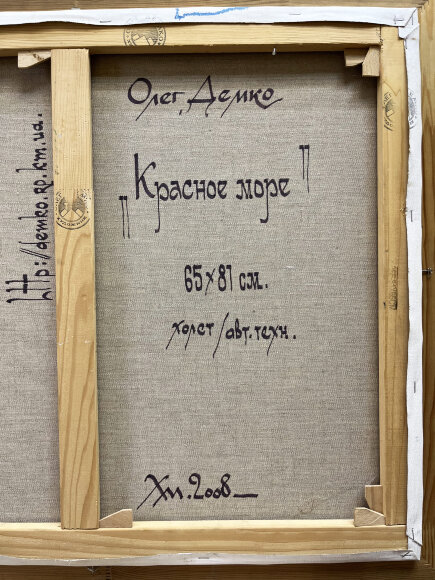 Олег Демко
"Красное море"
65×81 см.
холст/авт.техн.
Хм. 2008
http://demko.ap.km.ua.